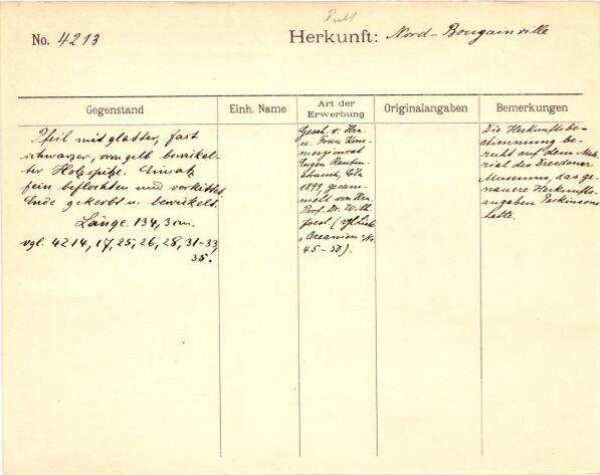 No. 4213
Herkunft: Nord-Bougainville
Gegenstand
Einh. Name
Art der
Erwerbung
Originalangaben
Bemerkungen
Pfeil mit glatter, fast
schwarzer, vorn gelb bewickel-
ter Holzspitze. Einsatz
fein beflochten und verkittet,
Ende gekerbt u. bewickelt.
Länge. 134,3 cm.
vgl. 4214, 17, 25, 26, 28, 31-33,
35.
Gesch. v. Hrn
u. Frau Kom-
merzienrat
Eugen Rauten-
strauch, Cöln
1899, gesam-
melt von Hrn.
Prof. Dr. Wilh.
Joest (vgl.
Oceanien No.
45-50).
Die Herkunftsbe-
stimmung be-
ruht auf dem Mate-
rial des Dresdener
Museums, das ge-
nauere Herkunfts-
angaben Parkinsons
hatte.